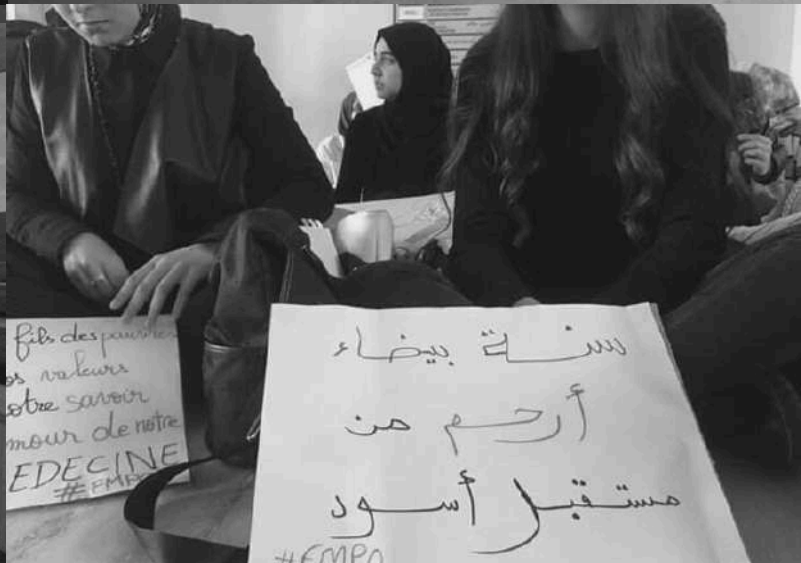 fils des pauvres
os valeurs
otre savoir
mour de notre
EDECINE
#FMPO
سنة بيضاء
أرحم من
مستقبل أسود
#FMPO